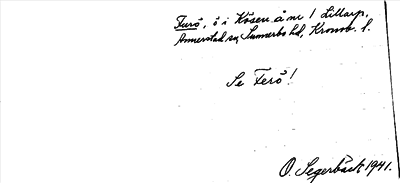 Furö, ö i Kösen å nr 1 Lillarp,
Annerstad sn, Sunnerbo hd, Kronob. l.
Se Ferö!
O. Segerbäck 1941.